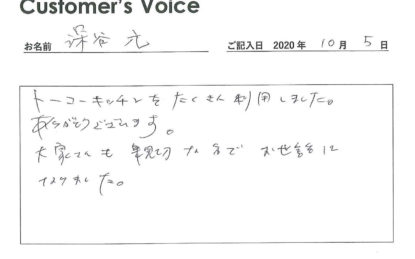 Customer's Voice
お名前 深谷 元 ご記入日 2020年 10月 5日
トーコーキッチンをたくさん利用しました。
ありがとうございます。
大家さんも親切な方で お世話に
なりました。